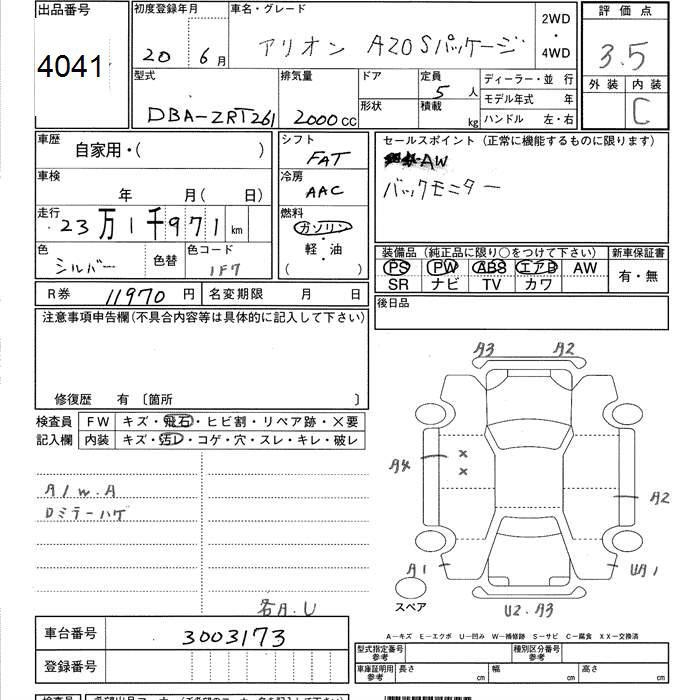 出品番号
4041
初度登録年月
20 年 6 月
車名・グレード
アリオン A20 Sパッケージ
2WD
・
4WD
評価点
3.5
外装 内装
C
型式
DBA-ZRT261
排気量
2000 CC
ドア
形状
定員
5 人
積載
kg
ディーラー・並 行
モデル年式 年
ハンドル 左・右
車歴
自家用・( )
車検
年 月( 日)
走行
23万1千971 km
色
シルバー
色替
色コード
1F7
シフト
FAT
冷房
AAC
燃料
ガソリン
・
軽・油
( )
セールスポイント (正常に機能するものに限ります)
AW
バックモニター
装備品 (純正品に限り○をつけて下さい)
PS PW ABS エアB AW
SR ナビ TV カワ
新車保証書
有・無
R券 11970 円
名変期限 月 日
後日品
注意事項申告欄(不具合内容等は具体的に記入して下さい)
修復歴 有 〔箇所 〕
検査員
記入欄
FW キズ・飛石・ヒビ割・リペア跡・×要
内装 キズ・汚レ・コゲ・穴・スレ・キレ・破レ
A/W.A
Dミラーハゲ
各A.U
A3 A2
A4
×
×
A2
A1
UA1
スペア
U2.A3
車台番号 3003173
登録番号
A-キズ E-エクボ U-凹み W-補修跡 S-サビ C-腐食 XX-交換済
型式指定番号
参考
種別区分番号
参考
車庫証明用
参考
長さ cm 幅 cm 高さ cm